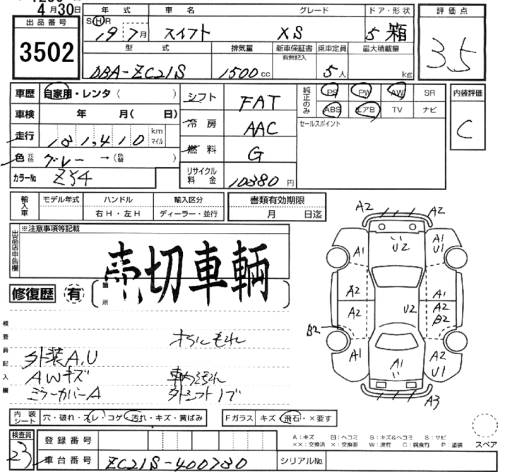 4月30日
出品番号
3502
年式 車名 グレード ドア・形状
S H R 19 7月 スイフト XS 5 箱
評価点
3.5
型式 排気量 新車保証書 有無記入 乗車定員 最大積載量
DBA-ZC21S 1500cc 5人 kg
車歴 自家用・レンタ( )
車検 年 月( 日)
走行 131,410 km マイル
色 元色 グレー→(色替 )
カラーNo. ZJ4
シフト FAT
冷房 AAC
燃料 G
リサイクル料金 10380円
純正のみ PS PW AW SR
ABS エアB TV ナビ
セールスポイント
内装評価
C
輸入車 モデル年式 ハンドル 輸入区分
右H・左H ディーラー・並行
書類有効期限
月 日迄
※注意事項等記載
売切車輌
修復歴 有
箇所
検査員記入欄
外装A.U
AWキズ
ミラーカバーA
A2 A2
U2
A1 U1
A1 U1
A2 A2
U2
A1
A2 B2
B2
A2 U1
A1 U1
A1
A3
内装シート 穴・破れ・スレ・コゲ・汚れ・キズ・黄ばみ
Fガラス キズ・飛石・×要す
A:キズ U:ヘコミ B:キズ&ヘコミ S:サビ
××:交換済 ×:要交換 W:波打 C:腐食 P:塗装
スペア
検査員
23
登録番号
車台番号 ZC21S-400780 シリアルNo.